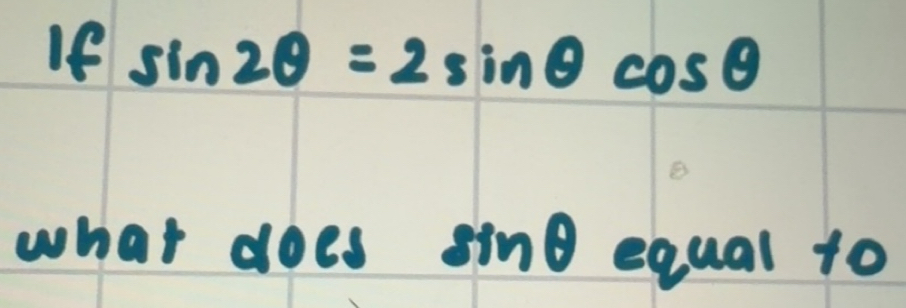 If sin2θ = 2sinθ cosθ
what does sinθ equal to